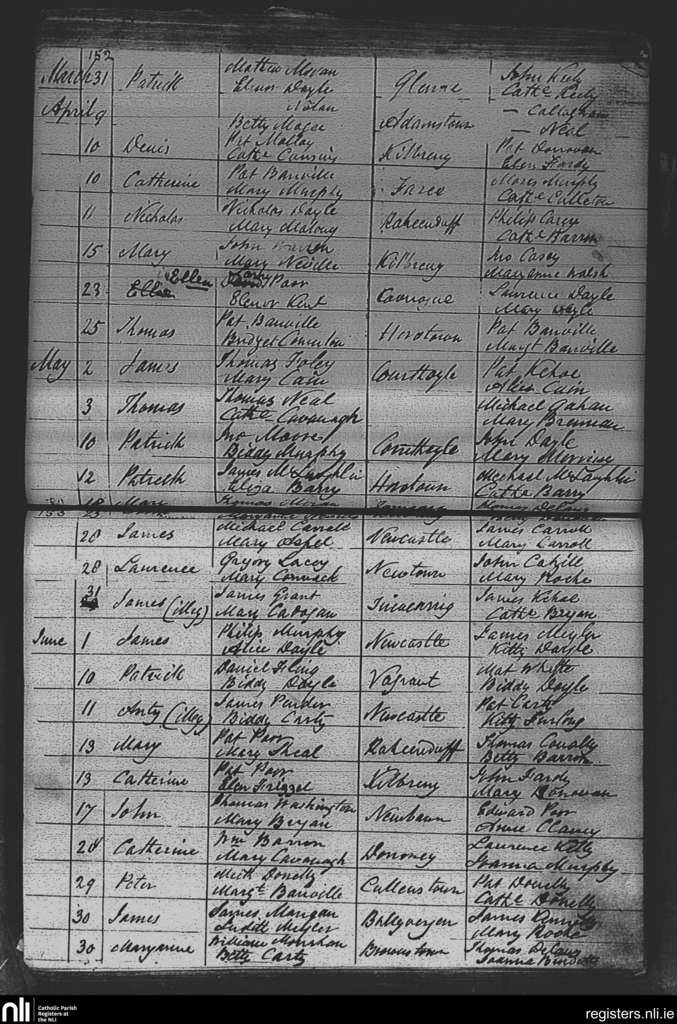 152
March 31 Patrick Mathew Moran Glenne John Kely
Elenor Doyle Cathe Keely
April 9 Nolan Adamstown – Callaghan
Betty Magee – Neal
10 Denis Pat Malloy Kilbreny Pat Donovan
Cathe Elen Hardy
10 Catherine Pat Banville Mores Murphy
Mary Murphy Cathe Culleton
11 Nicholas Nicholas Doyle Raheenduff Philip Carey
Mary Malony Cathe Barron
15 Mary John Warren Kilbreny Jno Casey
Mary Neville Maryanne Walsh
23 Ellen Ellen Poor Laurence Doyle
Elenor Kent Mary Doyle
25 Thomas Pat Banville Horotown Pat Banville
Bridget Margt Banville
May 2 James Thomas Foley Courthoyle Pat Kehoe
Mary Cain Cain
3 Thomas Thomas Neal Michael Gahan
Cathe Cavanagh Mary Brennan
10 Patrick Jno Moore Courthoyle John Doyle
Biddy Murphy Mary
12 Patrick James McLaughlin Horotown Michael McLaughlin
Eliza Barry Cathe Barry
18 Mary
153
28 James Michael Carroll Newcastle James Carroll
Mary Mary Carroll
28 Laurence Gregory Lacey Newtown John Cahill
Mary Cormack Mary Roche
31 James (illeg) James Grant James Kehoe
Mary Cadogan Cathe Bryan
June 1 James Philip Murphy Newcastle James Meyler
Alice Doyle Kitty Doyle
10 Patrick Daniel Fling Vagrant Mat Whitte
Biddy Doyle Biddy Doyle
11 Anty (illeg) James Purder Newcastle Pat Carty
Biddy Carty Kitty Furlong
13 Mary Pat Poor Raheenduff Thomas Conolly
Mary Sheal Betty Barron
13 Catherine Pat Poor Kilbreny John Hardy
Elen Frizzel Mary Donovan
17 John Thomas Washington Newbawn Edward Poor
Mary Bryan Clancy
28 Catherine Wm Barron Donooney Laurence Kelly
Mary Cavanagh Joanna Murphy
29 Peter Mick Donelly Cullenstown Pat Donelly
Margt Banville Cathe Donelly
30 James James Mangan James
Judith Meyler Mary Roche
30 Maryanne William Monahan Brownstown Thomas
Betty Carty Joanna
nli Catholic Parish
Registers at
the NLI
registers.nli.ie